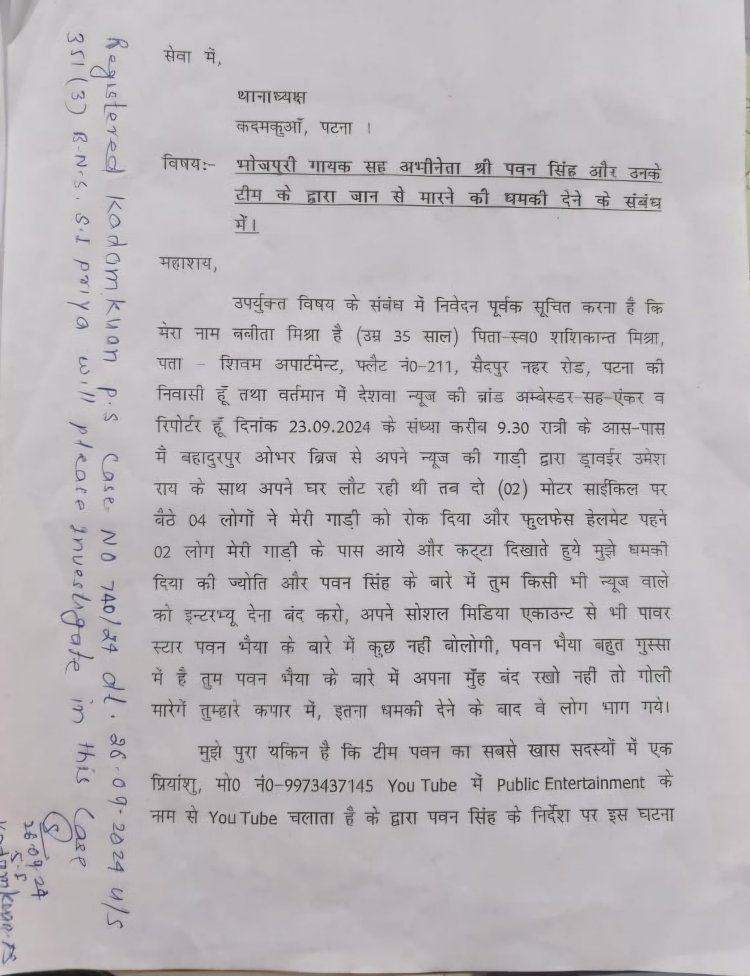 सेवा में,
थानाध्यक्ष
कदमकुआँ, पटना ।
विषयः- भोजपुरी गायक सह अभीनेता श्री पवन सिंह और उनके
टीम के द्वारा जान से मारने की धमकी देने के संबंध
में।
महाशय,
उपर्युक्त विषय के संबंध में निवेदन पूर्वक सूचित करना है कि
मेरा नाम बबीता मिश्रा है (उम्र 35 साल) पिता-स्व0 शशिकान्त मिश्रा,
पता - शिवम अपार्टमेन्ट, फ्लैट नं0-211, सैदपुर नहर रोड, पटना की
निवासी हूँ तथा वर्तमान में देशवा न्यूज की ब्रांड अम्बेस्डर-सह-एंकर व
रिपोर्टर हूँ दिनांक 23.09.2024 के संध्या करीब 9.30 रात्री के आस-पास
मैं बहादुरपुर ओभर ब्रिज से अपने न्यूज की गाड़ी द्वारा ड्राईवर उमेश
राय के साथ अपने घर लौट रही थी तब दो (02) मोटर साईकिल पर
बैठे 04 लोगों ने मेरी गाड़ी को रोक दिया और फुलफेस हेलमेट पहने
02 लोग मेरी गाड़ी के पास आये और कट्टा दिखाते हुये मुझे धमकी
दिया की ज्योति और पवन सिंह के बारे में तुम किसी भी न्यूज वाले
को इन्टरभ्यू देना बंद करो, अपने सोशल मिडिया एकाउन्ट से भी पावर
स्टार पवन भैया के बारे में कुछ नहीं बोलोगी, पवन भैया बहुत गुस्सा
में है तुम पवन भैया के बारे में अपना मुँह बंद रखो नहीं तो गोली
मारेगें तुम्हारे कपार में, इतना धमकी देने के बाद वे लोग भाग गये।
मुझे पुरा यकिन है कि टीम पवन का सबसे खास सदस्यों में एक
प्रियांशु, मो0 नं0-9973437145 You Tube में Public Entertainment के
नाम से You Tube चलाता है के द्वारा पवन सिंह के निर्देश पर इस घटना
Registered Kadamkuan P.S Case. NO 740/24 dt. 26.09.2024 u/s
351(3) B.N.S. S.I Priya will please investigate in this Case
26.09.24